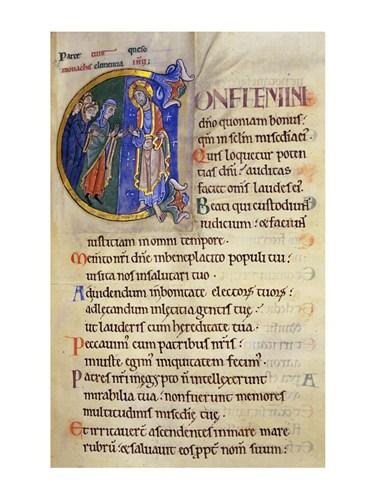 Parce tuis queso
monachis clementia IHU;
CONFITEMINI
dño quoniam bonus:
qm̃ in sclm̃ misc̃dia ei.
Quis loquetur poten
tias dñi: auditas
faciet om̃s laudes ei.
Beati qui custodiunt
iudicium: & faciunt
iusticiam in omni tempore.
Memento nr̃i dñe in beneplacito populi tui:
uisita nos in salutari tuo.
Ad uidendum in bonitate electorum tuorum:
ad letandum in leticia gentis tue:
ut lauderis cum hereditate tua.
Peccauimus cum patribus nr̃is:
iniuste egim̃ iniquitatem fecim̃.
Patres nr̃i in egypto ñ intellexerunt
mirabilia tua: non fuerunt memores
multitudinis misc̃die tue.
Et irritauerunt ascendentes in mare mare
rubrũ: & saluauit eos ppt̃ nom̃ suum: